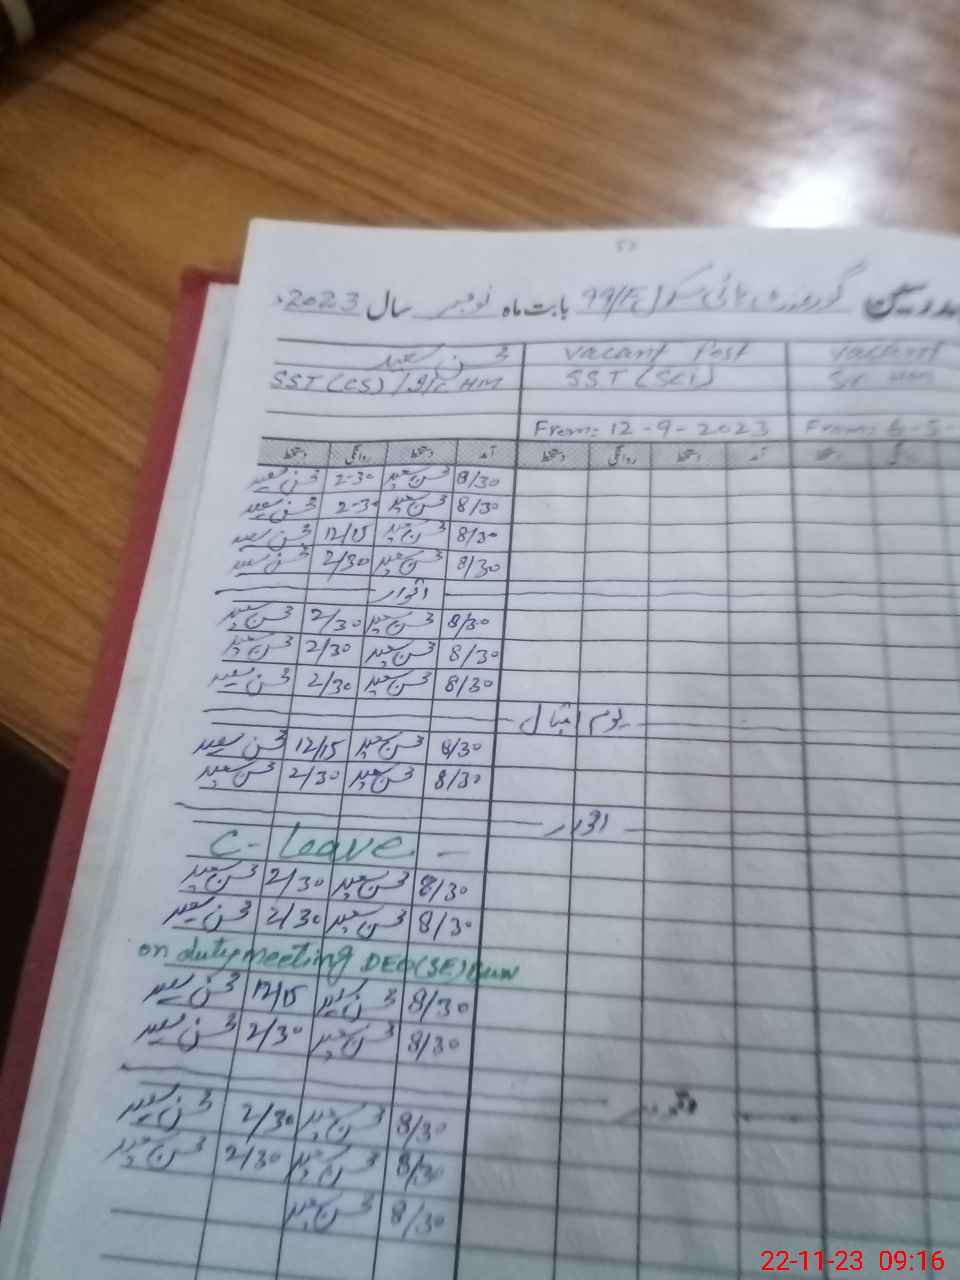 مدرسین گورنمنٹ ہائی سکول 99/F بابت ماہ نومبر سال 2023ء
محسن سعید Vacant Post Vacant
SST (CS) / I/C HM SST (Sci)
From: 12-9-2023 From:
آمد دستخط روانگی دستخط آمد دستخط روانگی دستخط
8/30 محسن سعید 2-30 محسن سعید
8/30 محسن سعید 2-30 محسن سعید
8/30 محسن سعید 12/15 محسن سعید
8/30 محسن سعید 2/30 محسن سعید
اتوار
8/30 محسن سعید 2/30 محسن سعید
8/30 محسن سعید 2/30 محسن سعید
8/30 محسن سعید 2/30 محسن سعید
یوم اقبال
8/30 محسن سعید 12/15 محسن سعید
8/30 محسن سعید 2/30 محسن سعید
اتوار
C- Leave
8/30 محسن سعید 2/30 محسن سعید
8/30 محسن سعید 2/30 محسن سعید
on duty meeting DEO (SE) BWN
8/30 محسن سعید 12/15 محسن سعید
8/30 محسن سعید 2/30 محسن سعید
اتوار
8/30 محسن سعید 2/30 محسن سعید
8/30 محسن سعید 2/30 محسن سعید
8/30 محسن سعید
22-11-23 09:16